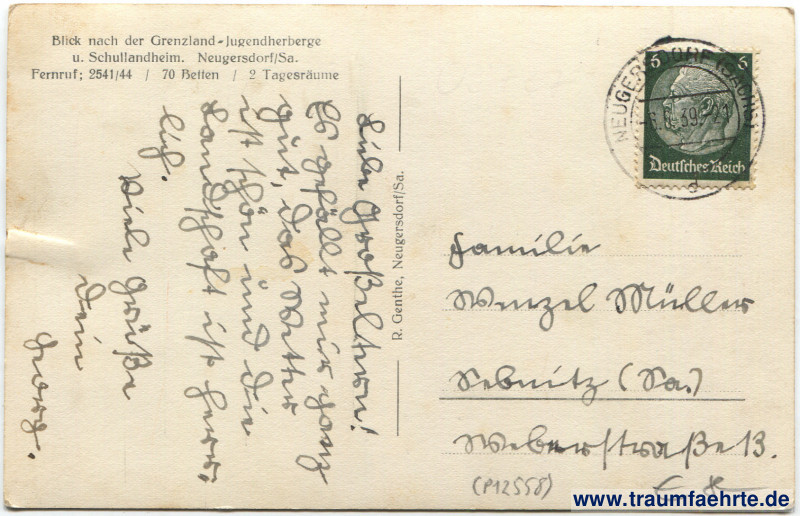 Blick nach der Grenzland-Jugendherberge
u. Schullandheim. Neugersdorf/Sa.
Fernruf: 2541/44 / 70 Betten / 2 Tagesräume
Liebe Großeltern!
Es gefällt mir ganz
gut, das Wetter
ist schön und die
Landschaft ist herr-
lich.
Viele Grüße
Dein
Georg.
R. Genthe, Neugersdorf/Sa.
NEUGERSDORF (SACHS)
-6.6.39.-21
d
6 6
Deutsches Reich
Familie
Wenzel Müller
Sebnitz (Sa.)
Weberstraße 13.
(P12558)
www.traumfaehrte.de